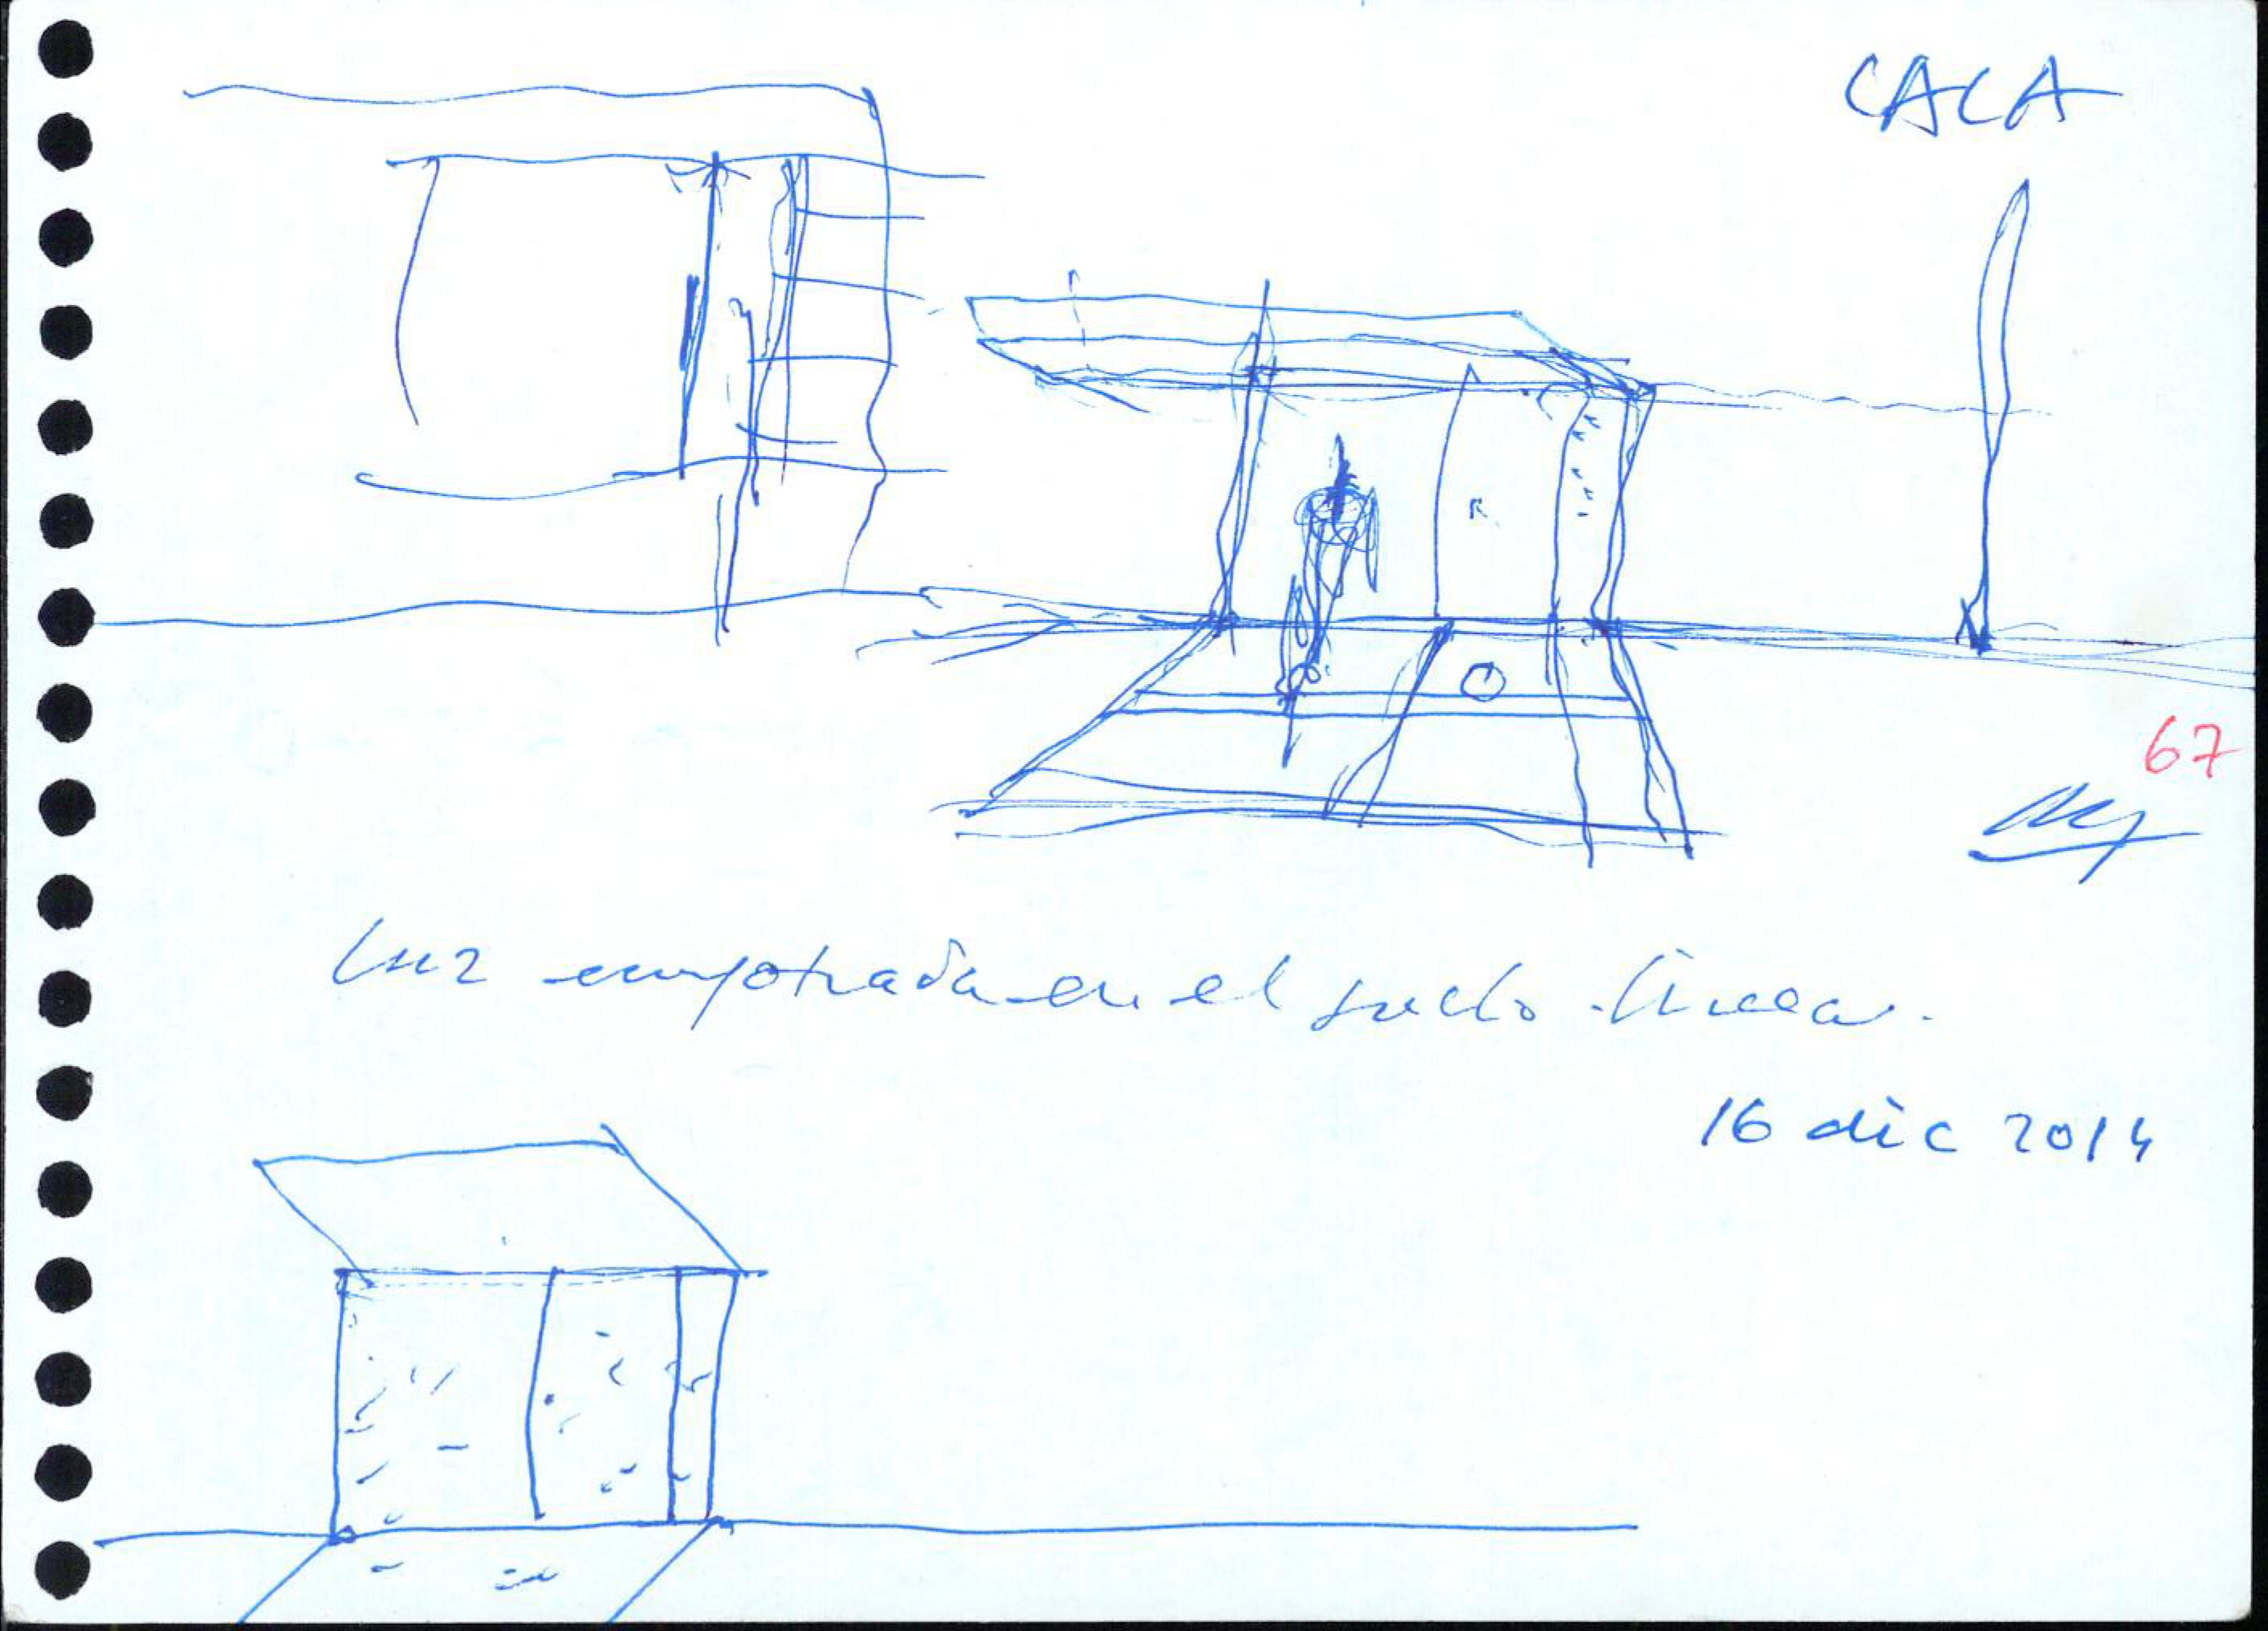 CALA
67
Luz empotrada en el suelo lineal.
16 dic 2014